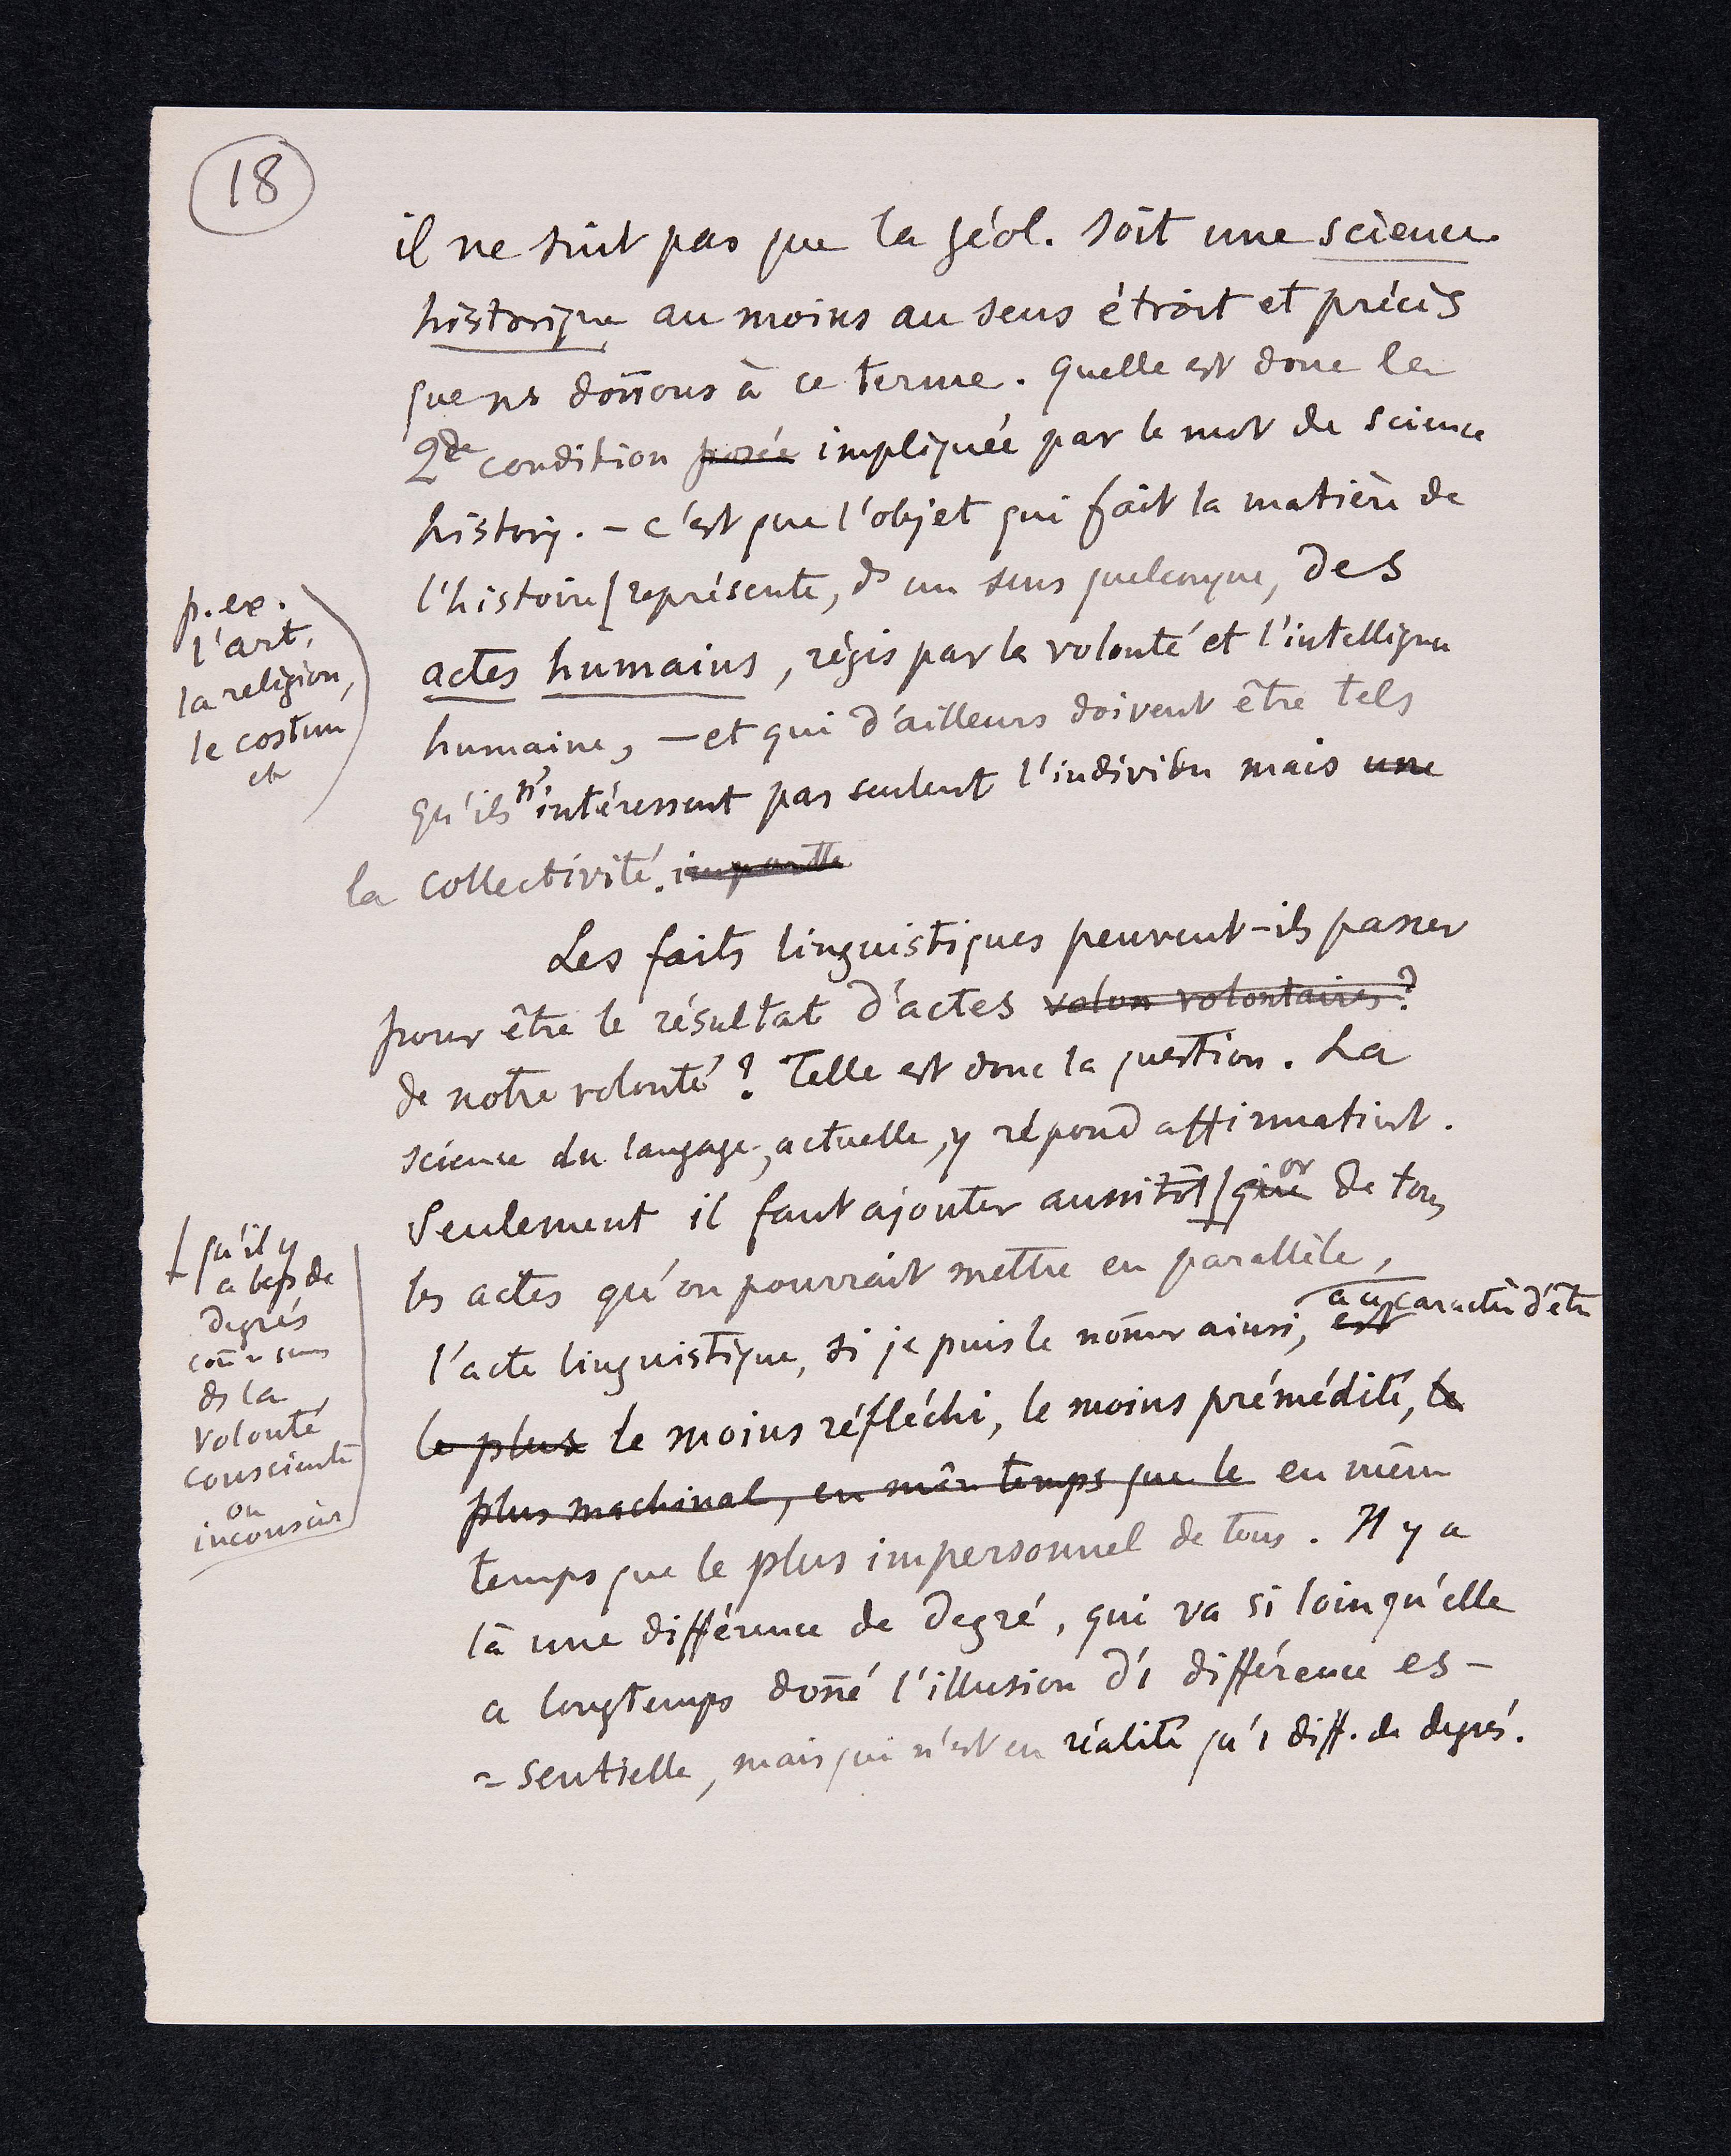 18
il ne suit pas que la géol. soit une science
historique au moins au sens étroit et précis
que ns don̄ons à ce terme. Quelle est donc la
2de condition posée impliquée par le mot de science
historiq. – c'est que l'objet qui fait la matière de
l'histoire [ représente, ds un sens quelconque, des
p. ex.
l'art,
la religion,
le costume
etc
actes humains, régis par la volonté et l'intelligence
humaine, – et qui d'ailleurs doivent être tels
qu'ils n'intéressent pas seulent l'individu mais une
la collectivité. importe
Les faits linguistiques peuvent-ils passer
pour être le résultat d'actes volon volontaires?
de notre volonté? Telle est donc la question. La
science du langage, actuelle, y répond affirmativt.
Seulement il faut ajouter aussitôt [ que or de tous
qu'il y
a bcp de
degrés
con̄us
ds la
volonté
consciente
ou
inconsciente
les actes qu'on pourrait mettre en parallèle,
l'acte linguistique, si je puis le nom̄er ainsi, est a ce caractère d'être
le plus le moins réfléchi, le moins prémédité, le
plus machinal, en même temps que le en même
temps que le plus impersonnel de tous. Il y a
là une différence de degré, qui va si loin qu'elle
a longtemps don̄é l'illusion d'1 différence es-
=sentielle, mais qui n'est en réalité qu'1 diff. de degrés.